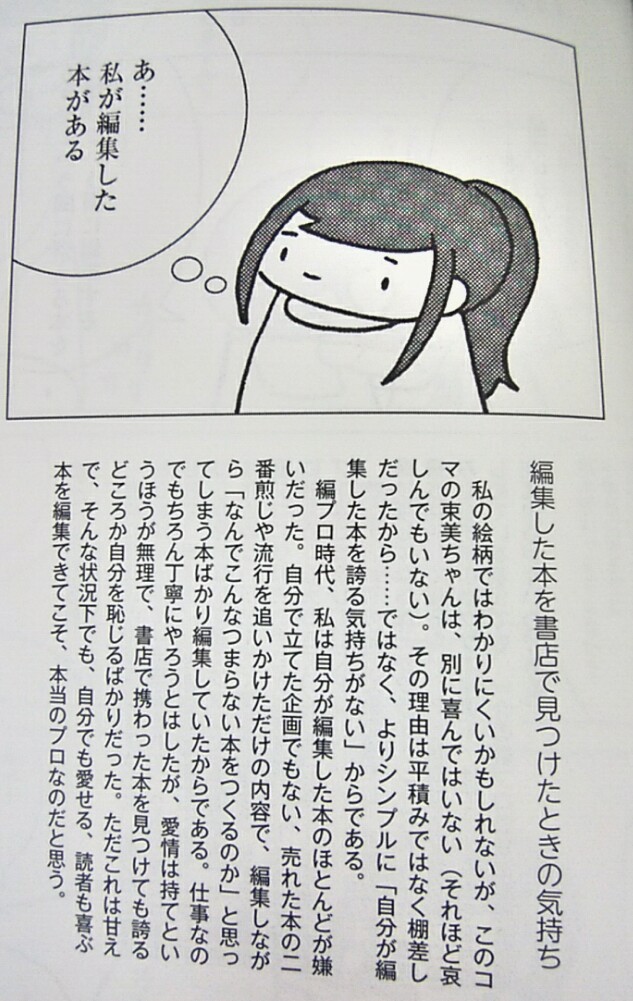 あ……
私が編集した
本がある
編集した本を書店で見つけたときの気持ち
私の絵柄ではわかりにくいかもしれないが、このコ
マの束美ちゃんは、別に喜んではいない（それほど哀
しんでもいない）。その理由は平積みではなく棚差し
だったから……ではなく、よりシンプルに「自分が編
集した本を誇る気持ちがない」からである。
編プロ時代、私は自分が編集した本のほとんどが嫌
いだった。自分で立てた企画でもない、売れた本の二
番煎じや流行を追いかけただけの内容で、編集しなが
ら「なんでこんなつまらない本をつくるのか」と思っ
てしまう本ばかり編集していたからである。仕事なの
でもちろん丁寧にやろうとはしたが、愛情は持てとい
うほうが無理で、書店で携わった本を見つけても誇る
どころか自分を恥じるばかりだった。ただこれは甘え
で、そんな状況下でも、自分でも愛せる、読者も喜ぶ
本を編集できてこそ、本当のプロなのだと思う。